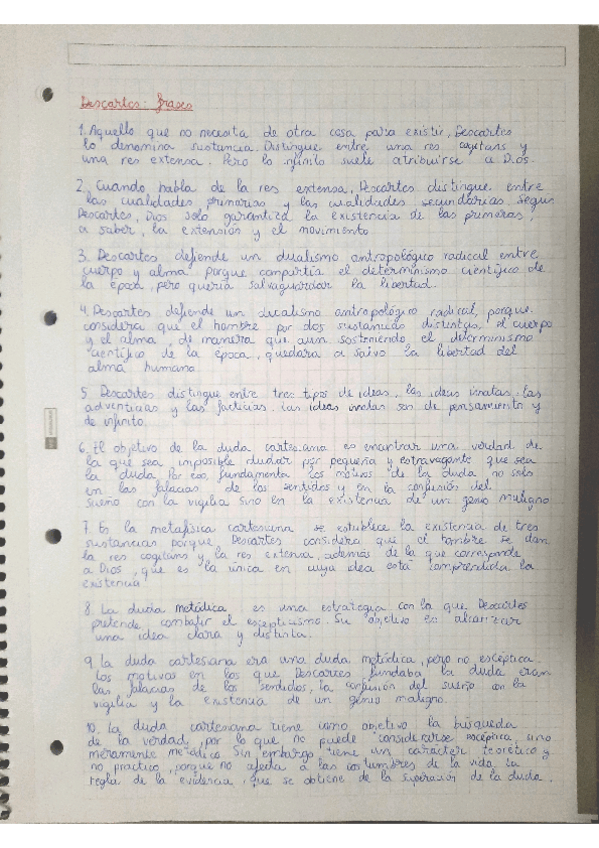 Descartes: frases
1. Aquello que no necesita de otra cosa para existir, Descartes
lo denomina sustancia. Distingue entre una res cogitans y
una res extensa. Pero lo infinito suele atribuirse a Dios.
2. Cuando habla de la res extensa, Descartes distingue entre
las cualidades primarias y las cualidades secundarias. Según
Descartes, Dios solo garantiza la existencia de las primeras,
a saber, la extensión y el movimiento
3. Descartes defiende un dualismo antropológico radical entre
cuerpo y alma porque compartía el determinismo científico de
la época, pero quería salvaguardar la libertad.
4. Descartes defiende un dualismo antropológico radical, porque
considera que el hombre por dos sustancias distintas, el cuerpo
y el alma, de manera que aun sosteniendo el determinismo
científico de la época, quedara a salvo la libertad del
alma humana.
5 Descartes distingue entre tres tipos de ideas, las ideas innatas, las
adventicias y las facticias. Las ideas innatas son de pensamiento y
de infinito.
6. El objetivo de la duda cartesiana es encontrar una verdad de
la que sea imposible dudar por pequeña y extravagante que sea
la duda. Por eso, fundamenta los motivos de la duda no solo
en las falacias de los sentidos y en la confusión del
sueño con la vigilia sino en la existencia de un genio maligno.
7. En la metafísica cartesiana se establece la existencia de tres
sustancias porque Descartes considera que el hombre se dan
la res cogitans y la res extensa, además de la que corresponde
a Dios, que es la única en cuya idea está comprendida la
existencia
8. La duda metódica es una estrategia con la que Descartes
pretende combatir el escepticismo. Su objetivo es alcanzar
una idea clara y distinta.
9. La duda cartesiana era una duda metódica, pero no escéptica.
Los motivos en los que Descartes fundaba la duda eran
las falacias de los sentidos, la confusión del sueño con la
vigilia y la existencia de un genio maligno.
10. La duda cartesiana tiene como objetivo la búsqueda
de la verdad, por lo que no puede considerarse escéptica, sino
meramente metódica. Sin embargo tiene un carácter teorético y
no práctico, porque no afecta a las costumbres de la vida. La
regla de la evidencia, que se obtiene de la superación de la duda.